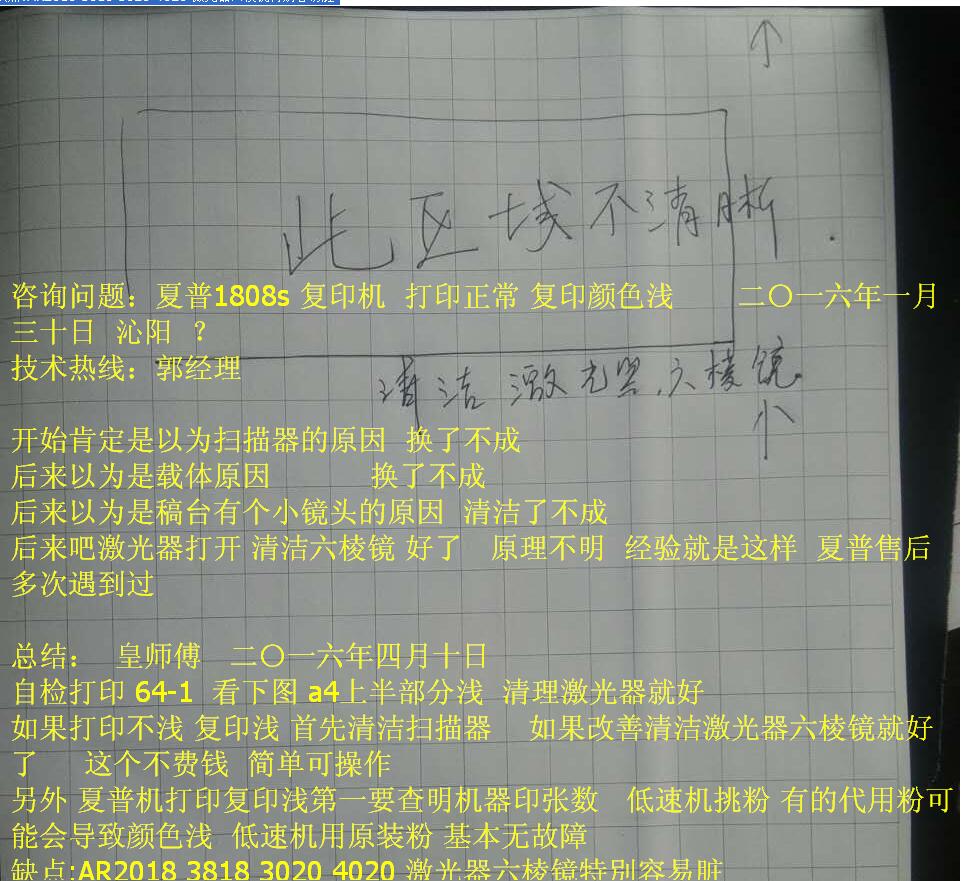 此区域不清晰.
咨询问题：夏普1808s 复印机 打印正常 复印颜色浅 二〇一六年一月
三十日 沁阳 ？
技术热线：郭经理
清洁激光器.六棱镜
小
开始肯定是以为扫描器的原因 换了不成
后来以为是载体原因 换了不成
后来以为是稿台有个小镜头的原因 清洁了不成
后来吧激光器打开 清洁六棱镜 好了 原理不明 经验就是这样 夏普售后
多次遇到过
总结： 皇师傅 二〇一六年四月十日
自检打印 64-1 看下图 a4上半部分浅 清理激光器就好
如果打印不浅 复印浅 首先清洁扫描器 如果改善清洁激光器六棱镜就好
了 这个不费钱 简单可操作
另外 夏普机打印复印浅第一要查明机器印张数 低速机挑粉 有的代用粉可
能会导致颜色浅 低速机用原装粉 基本无故障
缺点:AR2018 3818 3020 4020 激光器六棱镜特别容易脏